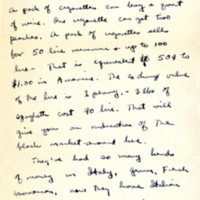 A pack of cigarettes can buy a quart
of wine. One cigarette can get two
peaches. A pack of cigarettes sells
for 50 lire minimum & up to 100
lire - That is equivalent to 50¢ to
$1.00 in America. The exchange value
of the lire is 1 penny. - 3 lbs of
spaghetti cost 90 lire. That will
give you an indication of the
black market around here.
They've had so many kinds
of money in Italy, German, French
now they have Italian